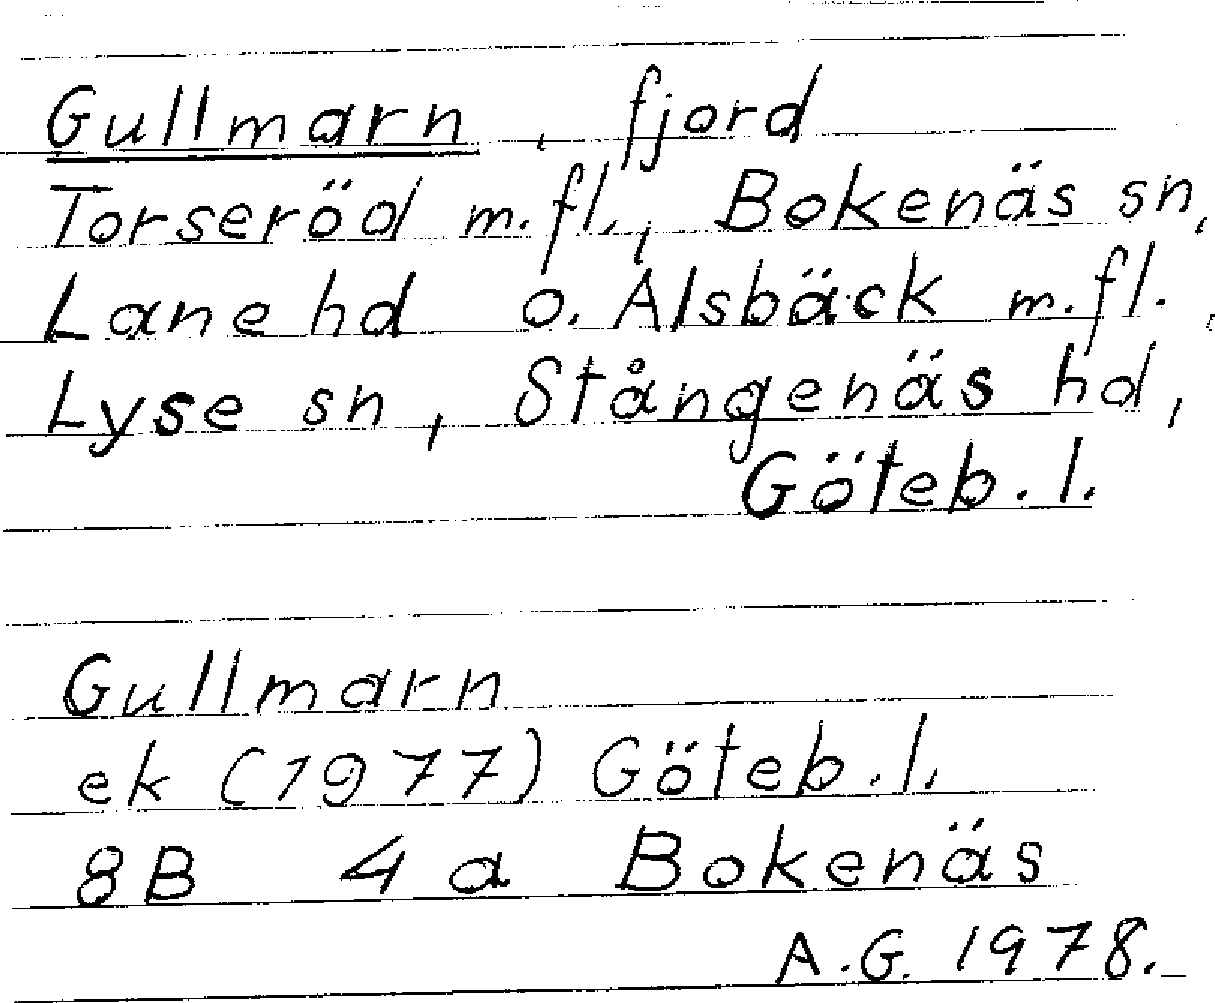 Gullmarn, fjord
Torseröd m.fl., Bokenäs sn,
Lane hd o. Alsbäck m.fl.,
Lyse sn, Stångenäs hd,
Göteb.l.
Gullmarn
ek (1977) Göteb.l.
8B 4a Bokenäs
A.G. 1978.